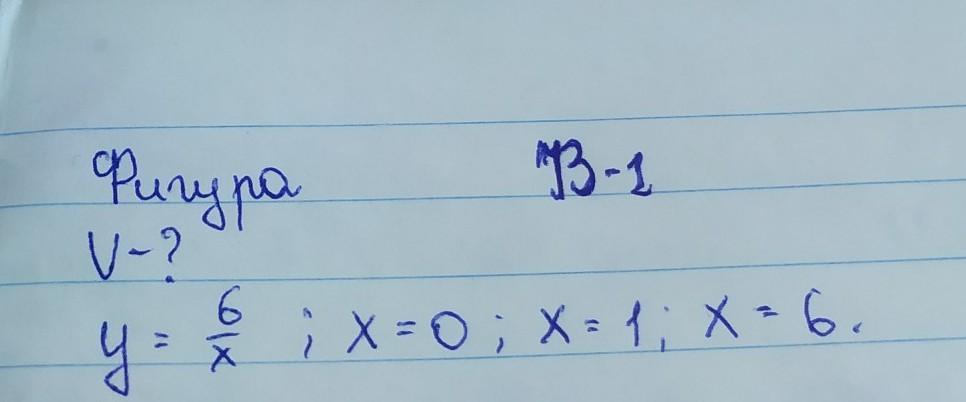 Фигура В-1
V-?
y = 6/x ; x = 0 ; x = 1 ; x = 6.